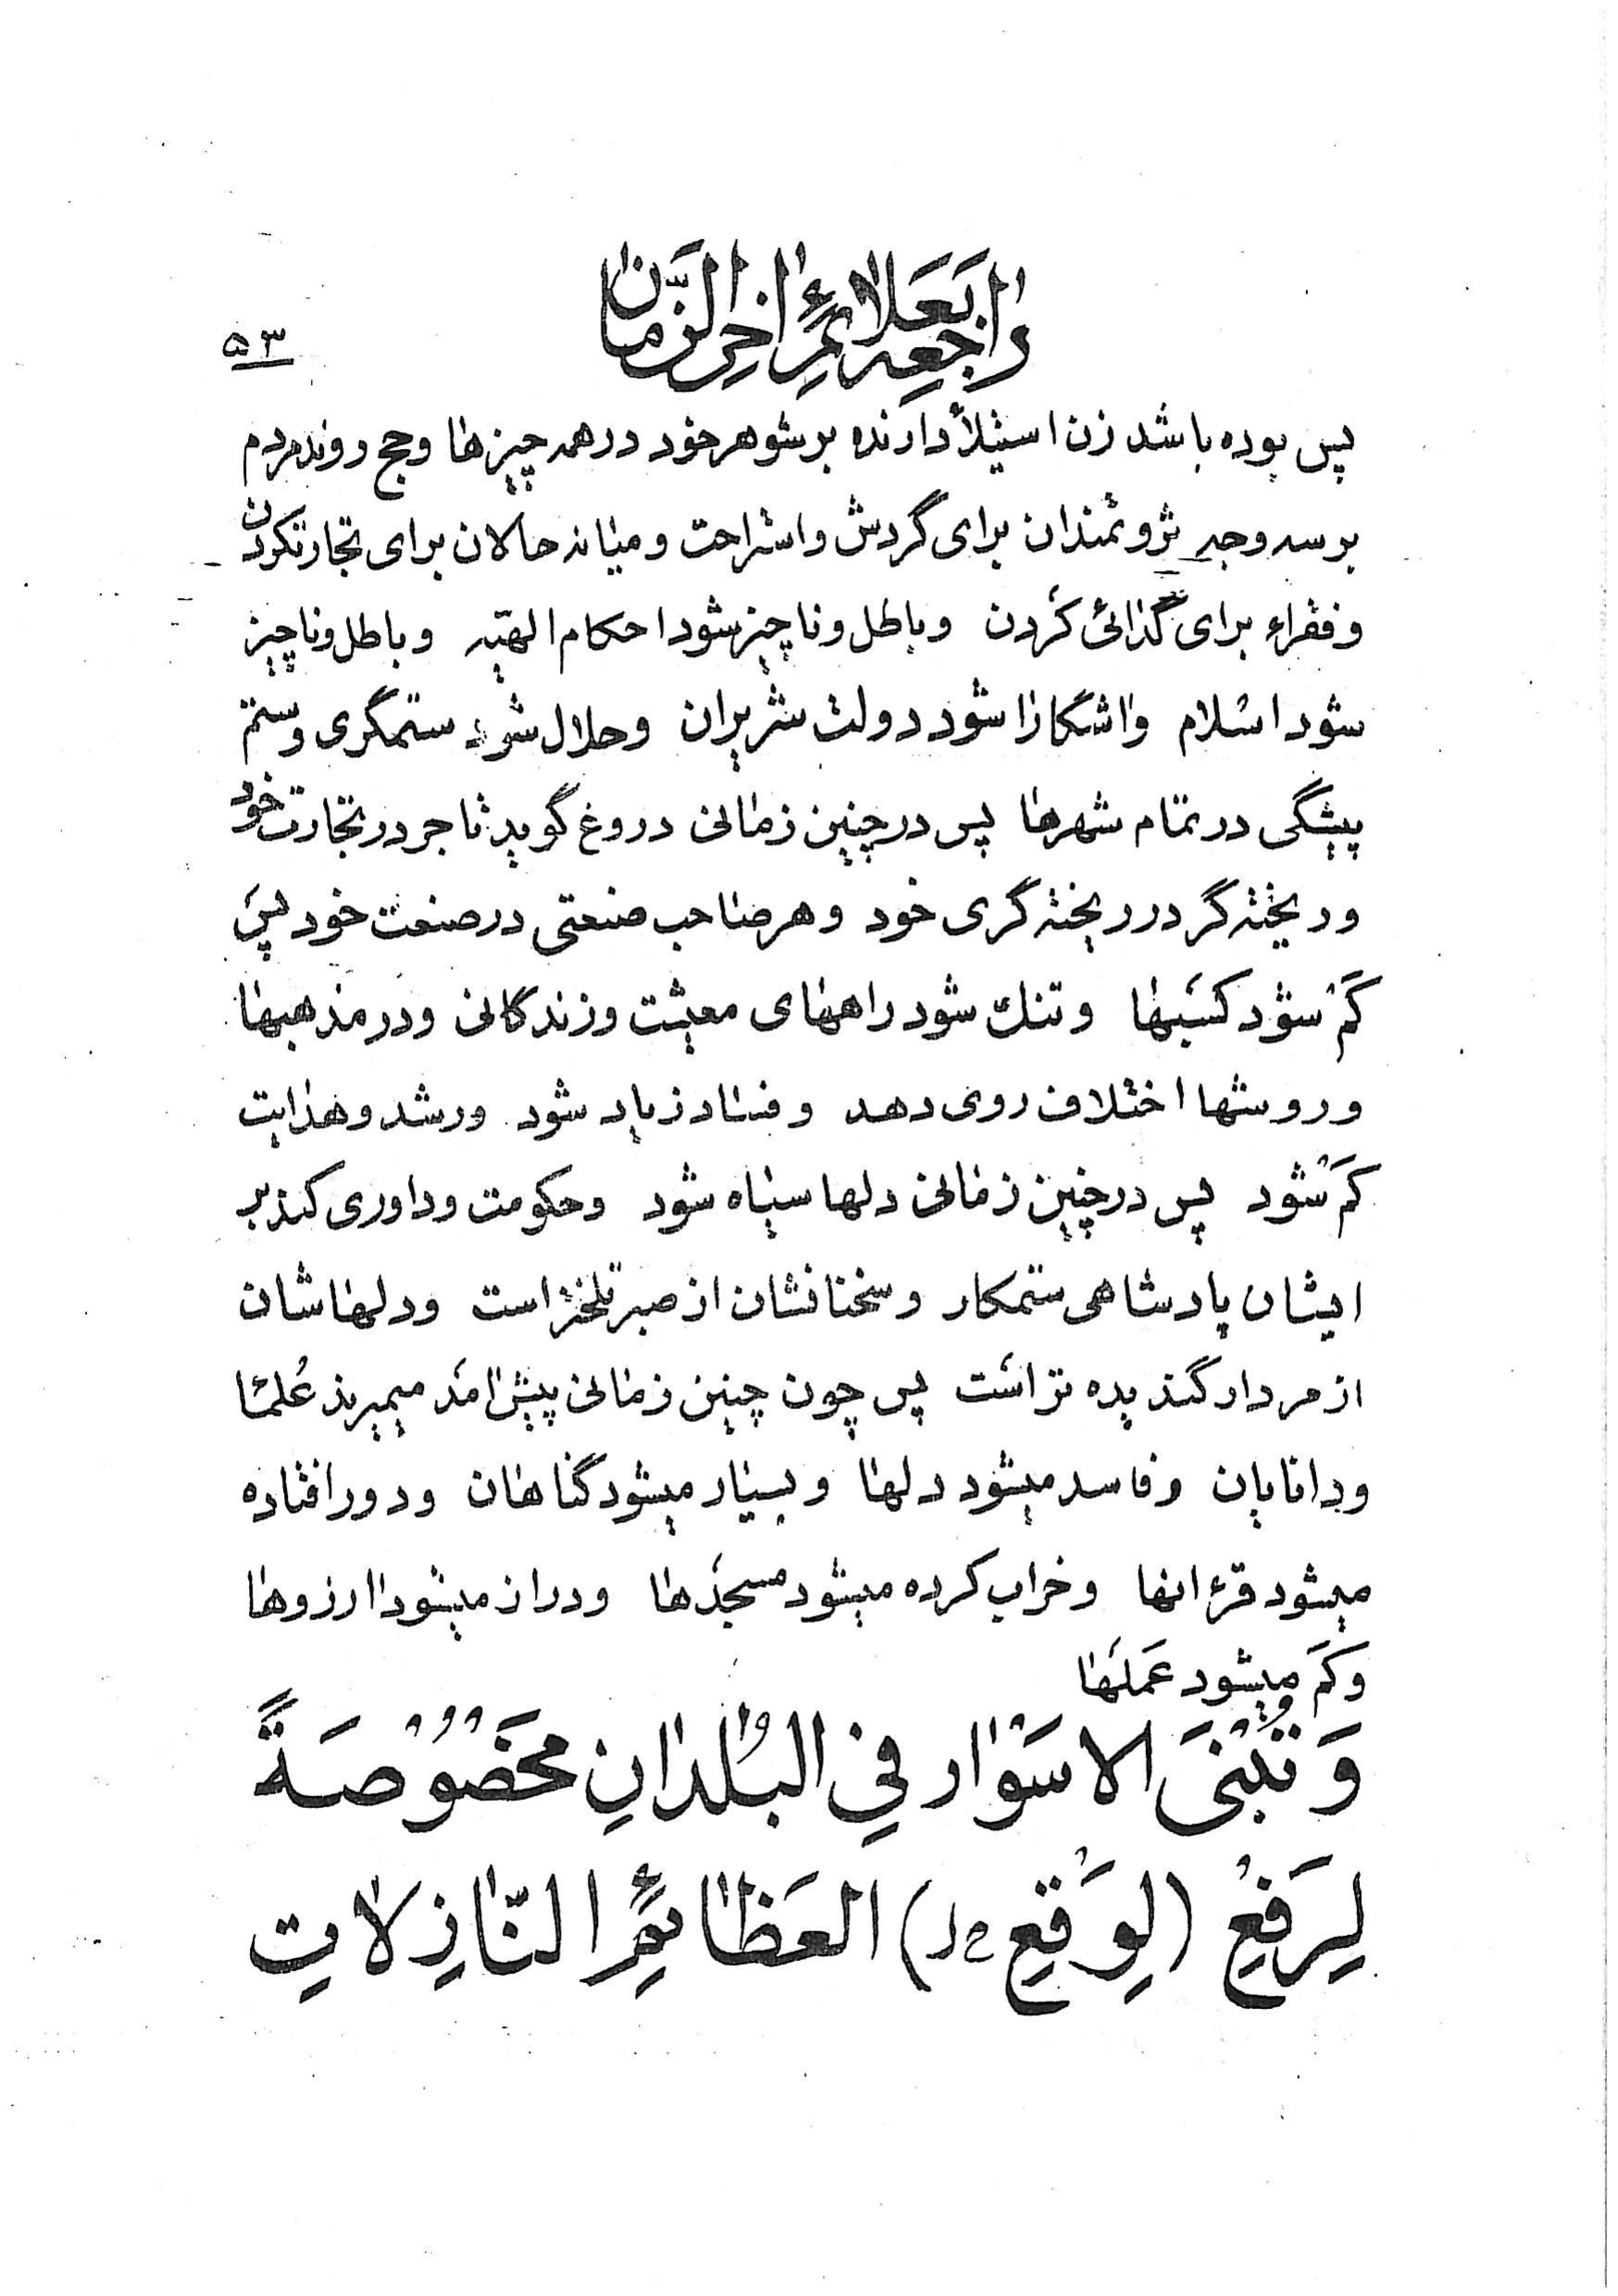 راجعه بعلائم اخر الزمان
۵۳
پس بوده باشد زن استیلاً دارنده بر شوهر خود در همه چیزها و حج روند مردم
بر سه وجه ثروتمندان برای گردش و استراحت و میانه حالان برای تجارتکردن
و فقراء برای گدائی کردن و باطل و ناچیز شود احکام الهیه و باطل و ناچیز
شود اسلام و اشکارا شود دولت شریران و حلال شود ستمگری و ستم
پیشگی در تمام شهرها پس در چنین زمانی دروغ گوید تاجر در تجارت خود
و ریخته گر در ریخته گری خود و هر صاحب صنعتی در صنعت خود پس
کَم شود کسَبها و تنك شود راههای معیشت و زندگانی و در مذهبها
و روشها اختلاف روی دهد و فساد زیاد شود و رشد و هدایت
کَم شود پس در چنین زمانی دلها سیاه شود و حکومت و داوری کند بر
ایشان پادشاهی ستمکار و سخنانشان از صبر تلختر است و دلهاشان
از مردار گندیده تر اسَت پس چون چنین زمانی پیش امَد میمیرند عُلمَا
و دانایان و فاسد میشود دلها و بسیار میشود گناهان و دور افتاده
میشود قرءانها و خراب کرده میشود مسجدَها و دراز میشود ارزوها
و کَم میشود عَمَلَها
وَ تُبْنَی الاسَوْار فِی الْبُلدانِ مَخصُوُصَةً
لِرَفِعْ (لِوَقِعْ دل) العَظائِمِ النّازِلاتِ